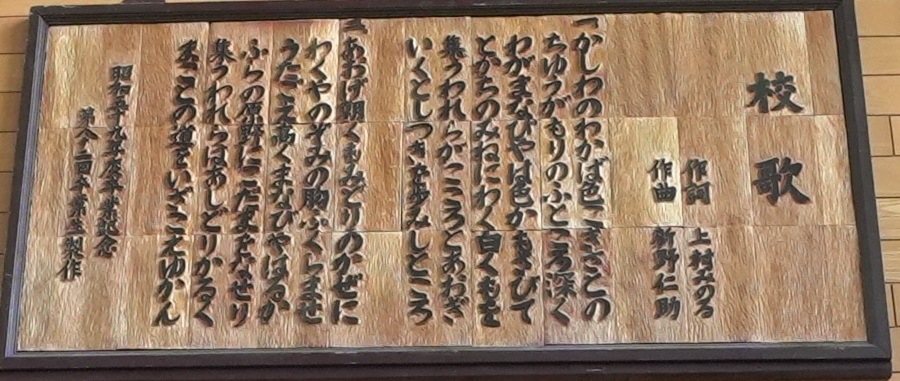 校歌
作詞 上村みのる
作曲 新野仁助
一、かしわのわかば色こきさとの
ちゆうがもりのふところ深く
わがまなびやは色かもさびて
とかちのみねにわく白くもを
集うわれらがこころとあおぎ
いくとしつきを歩みしところ
二、あおげ朝くもみどりのかぜに
わくやのぞみの胸ふくらませ
うたごえ高くまなびやはるか
ふらの原野にこだまをなせり
集うわれらはあしどりかるく
まことの道をいざこえゆかん
昭和五十九年度卒業記念
卒業生製作